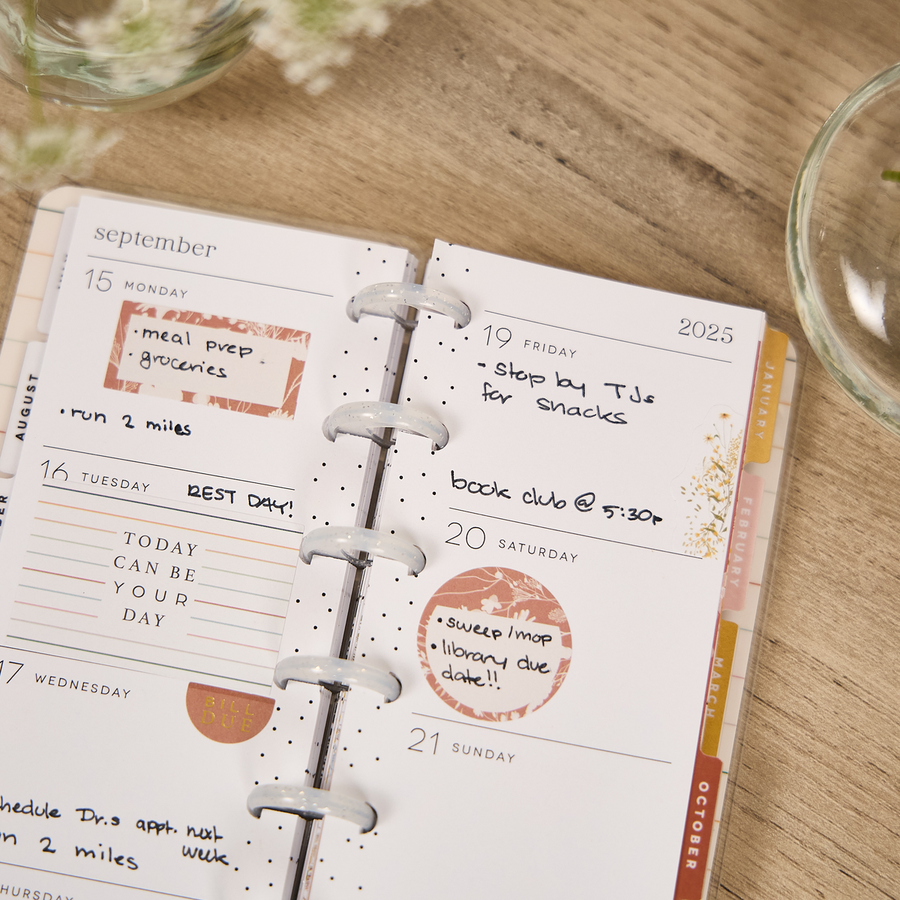 september
15 MONDAY
• meal prep
• groceries
• run 2 miles
16 TUESDAY REST DAY!
TODAY
CAN BE
YOUR
DAY
17 WEDNESDAY
BILL
DUE
hedule Dr.s appt. next
week.
n 2 miles
HURSDAY
2025
19 FRIDAY
• stop by TJs
for snacks
book club @ 5:30p
20 SATURDAY
• sweep/mop
• library due
date!!
21 SUNDAY
AUGUST
ER
JANUARY
FEBRUARY
MARCH
OCTOBER